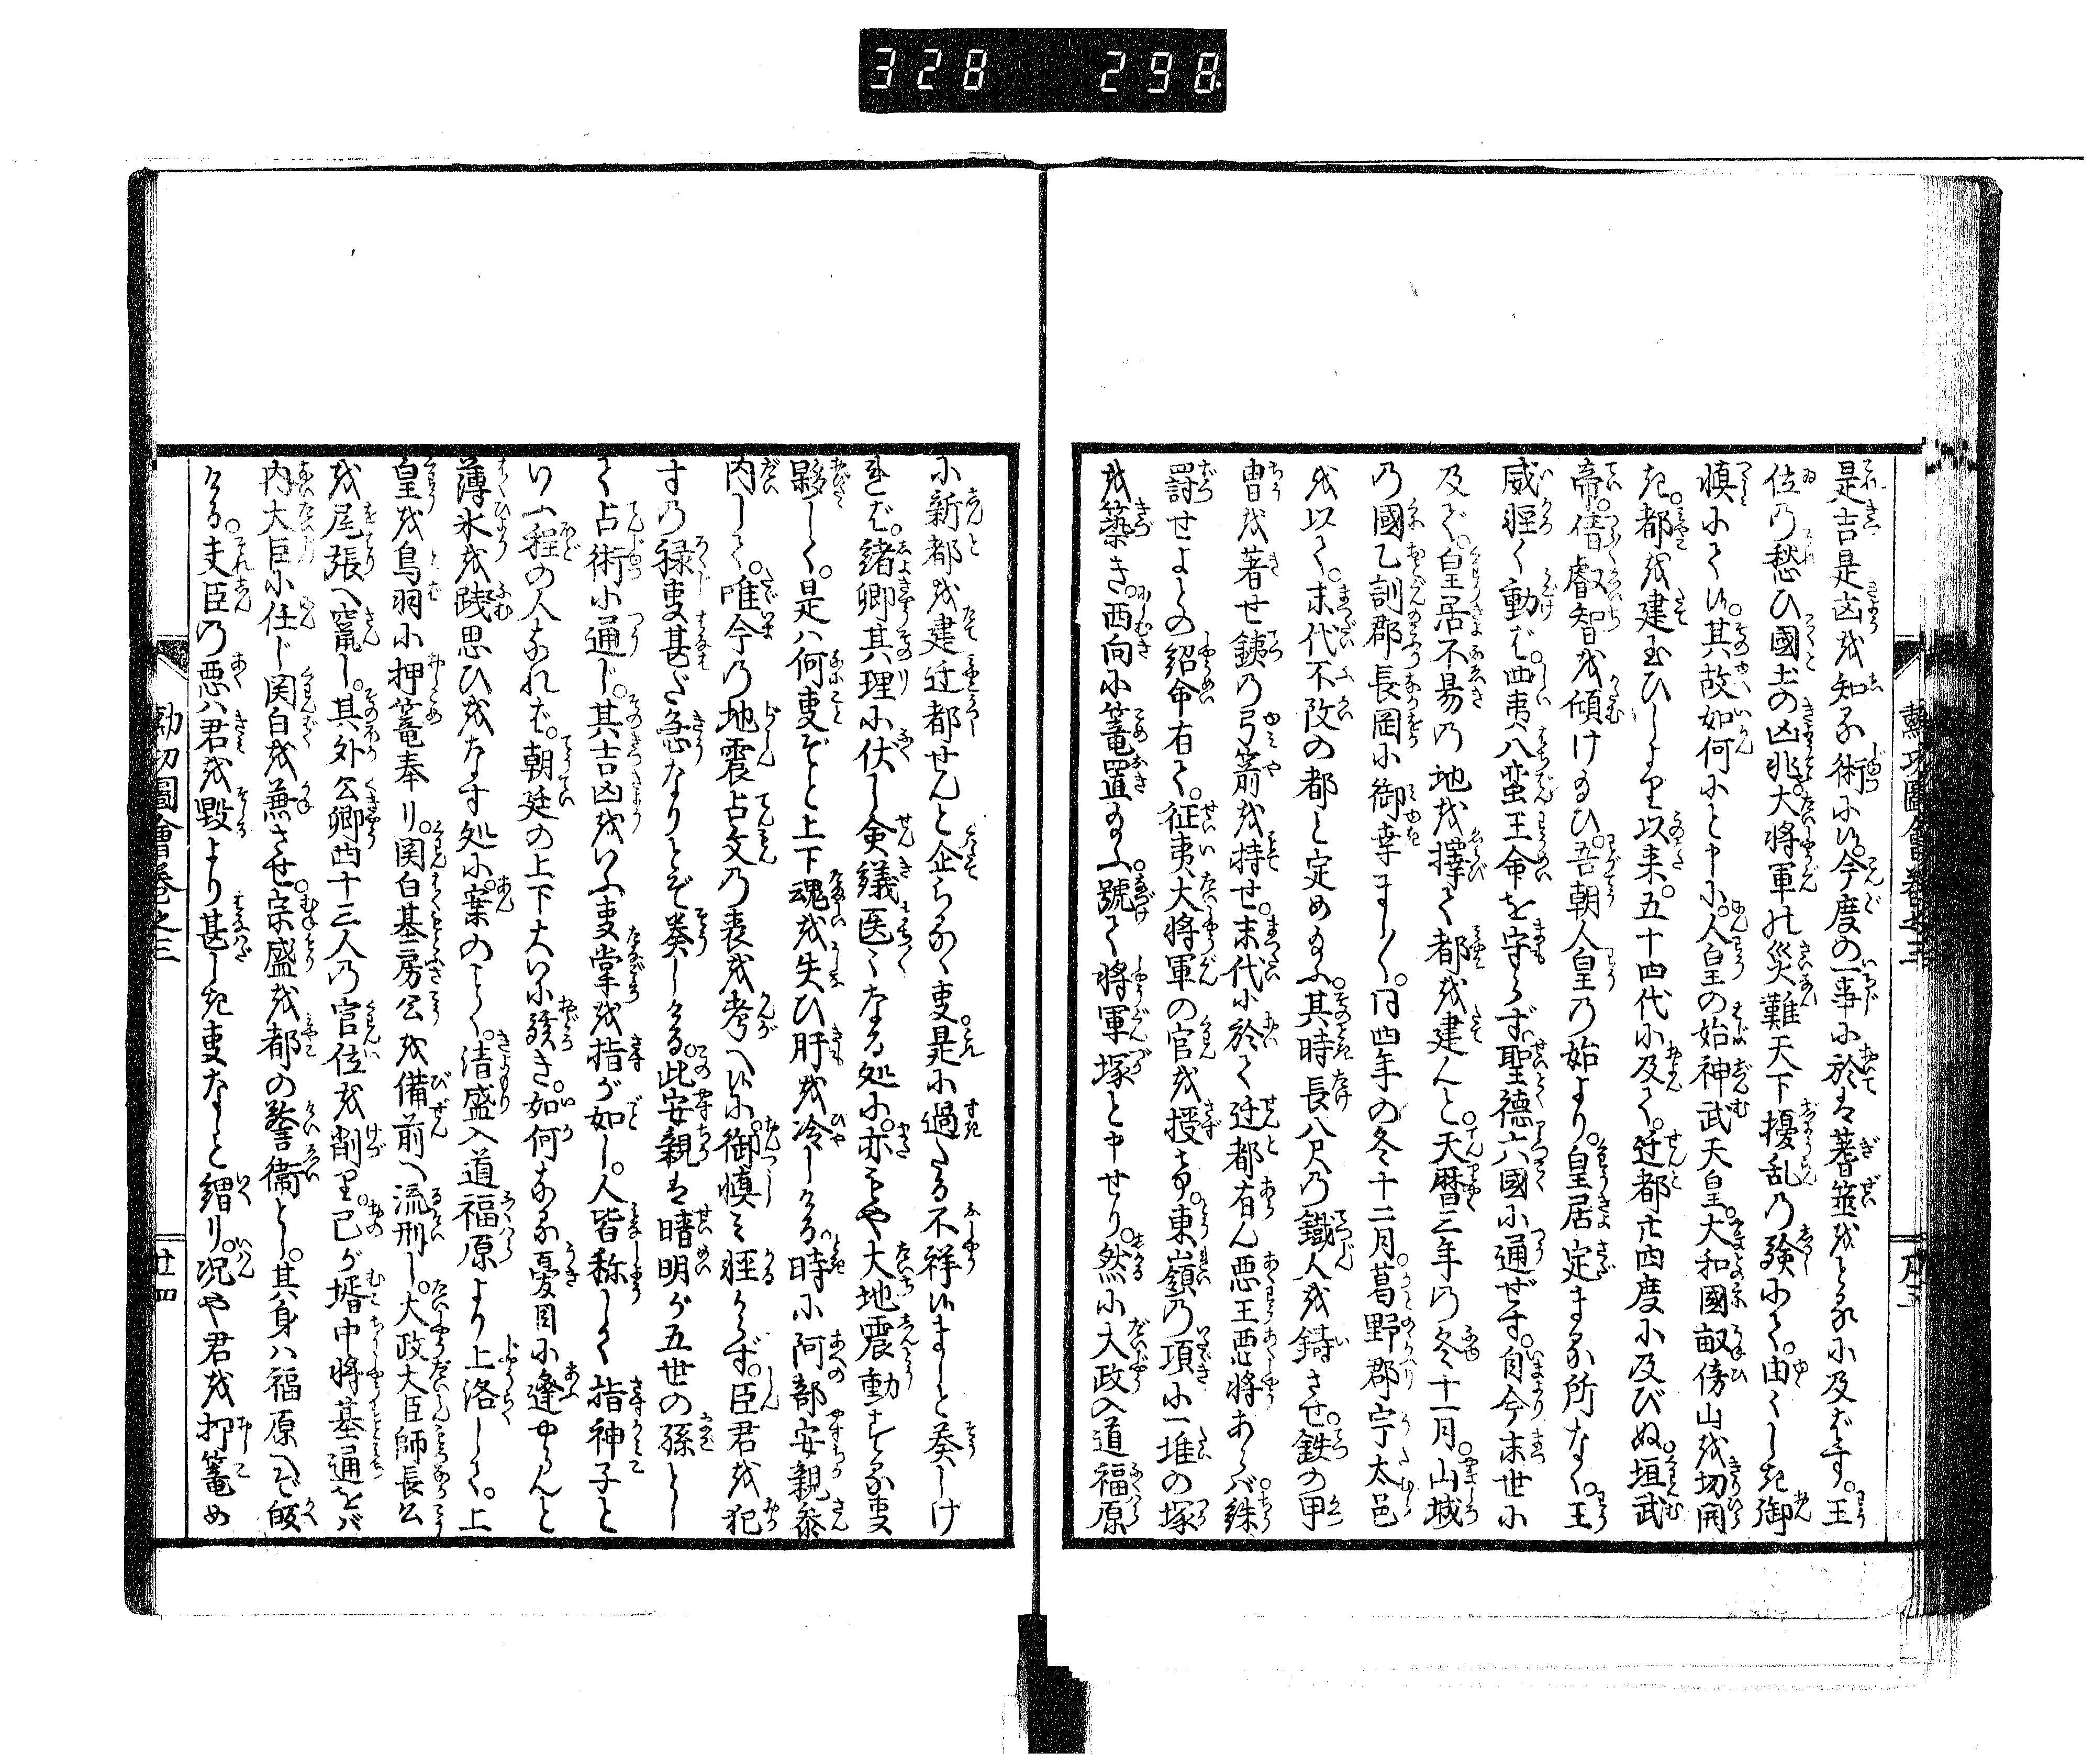 328 298
是吉是凶を知る術に候今度の一事に於は蓍筮をとるに及ばす。王
位の愁ひ國土の凶兆大将軍の災難天下擾乱の験にて。由〻しき御
慎にて候。其故如何にと申に。人皇の始神武天皇。大和國畝傍山を切開
き。都を建玉ひしより以来。五十四代に及て。迁都廿四度に及びぬ。垣武
帝。倩叡智を傾け玉ひ。吾朝人皇の始より。皇居定まる所なく。王
威軽く動ば。四夷八蛮王命を守らず聖徳六國に通ぜす。自今末世に
及ぞ。皇居不易の地を擇て都を建んと。天暦三年の冬十一月。山城
の國乙訓郡長岡に御幸まし〳〵。同四年の冬十二月。葛野郡宇太邑
を以て。末代不改の都と定め玉ふ。其時長八尺の鐵人を鋳させ。鉄の甲
冑を著せ銕の弓箭を持せ。末代に於て迁都有ん悪王悪将あらバ。殊
罸せよとの詔命有て。征夷大将軍の官を授玉ひ。東嶺の項に一堆の塚
を築き。西向に篭置玉ふ。號て将軍塚と申せり。然に大政入道福原
に新都を建迁都せんと企らるゝ事。是に過たる不祥候まじと奏しけ
れば。諸卿其理に伏し僉議区〻なる処に。亦もや大地震動する事
夥しく。是ハ何事ぞと上下魂を失ひ肝を冷しける。時に阿部安親参
内して。唯今の地震占文の表を考へ候に。御慎ミ軽からず。臣君を犯
すの禄事甚だ急なりとぞ奏しける。此安親は晴明が五世の孫とし
て占術に通じ。其吉凶をいふ事掌を指が如し。人皆称して指神子と
いふ程の人なれば。朝廷の上下大に駭き。如何なる憂目に逢やらんと
薄氷を踐思ひをなす処に。案のごく。清盛入道福原より上洛して。上
皇を鳥羽に押篭奉り。関白基房公を備前へ流刑し。大政大臣師長公
を尾張へ竄し。其外公卿四十三人の官位を削り。己が壻中将基通をバ
内大臣に任じ関白を兼させ。宗盛を都の警衞とし。其身ハ福原へぞ皈
ける。夫臣の悪ハ君を毀より甚しき事なしと謂り。况や君を押篭め
勲功圖會巻之三
廿四